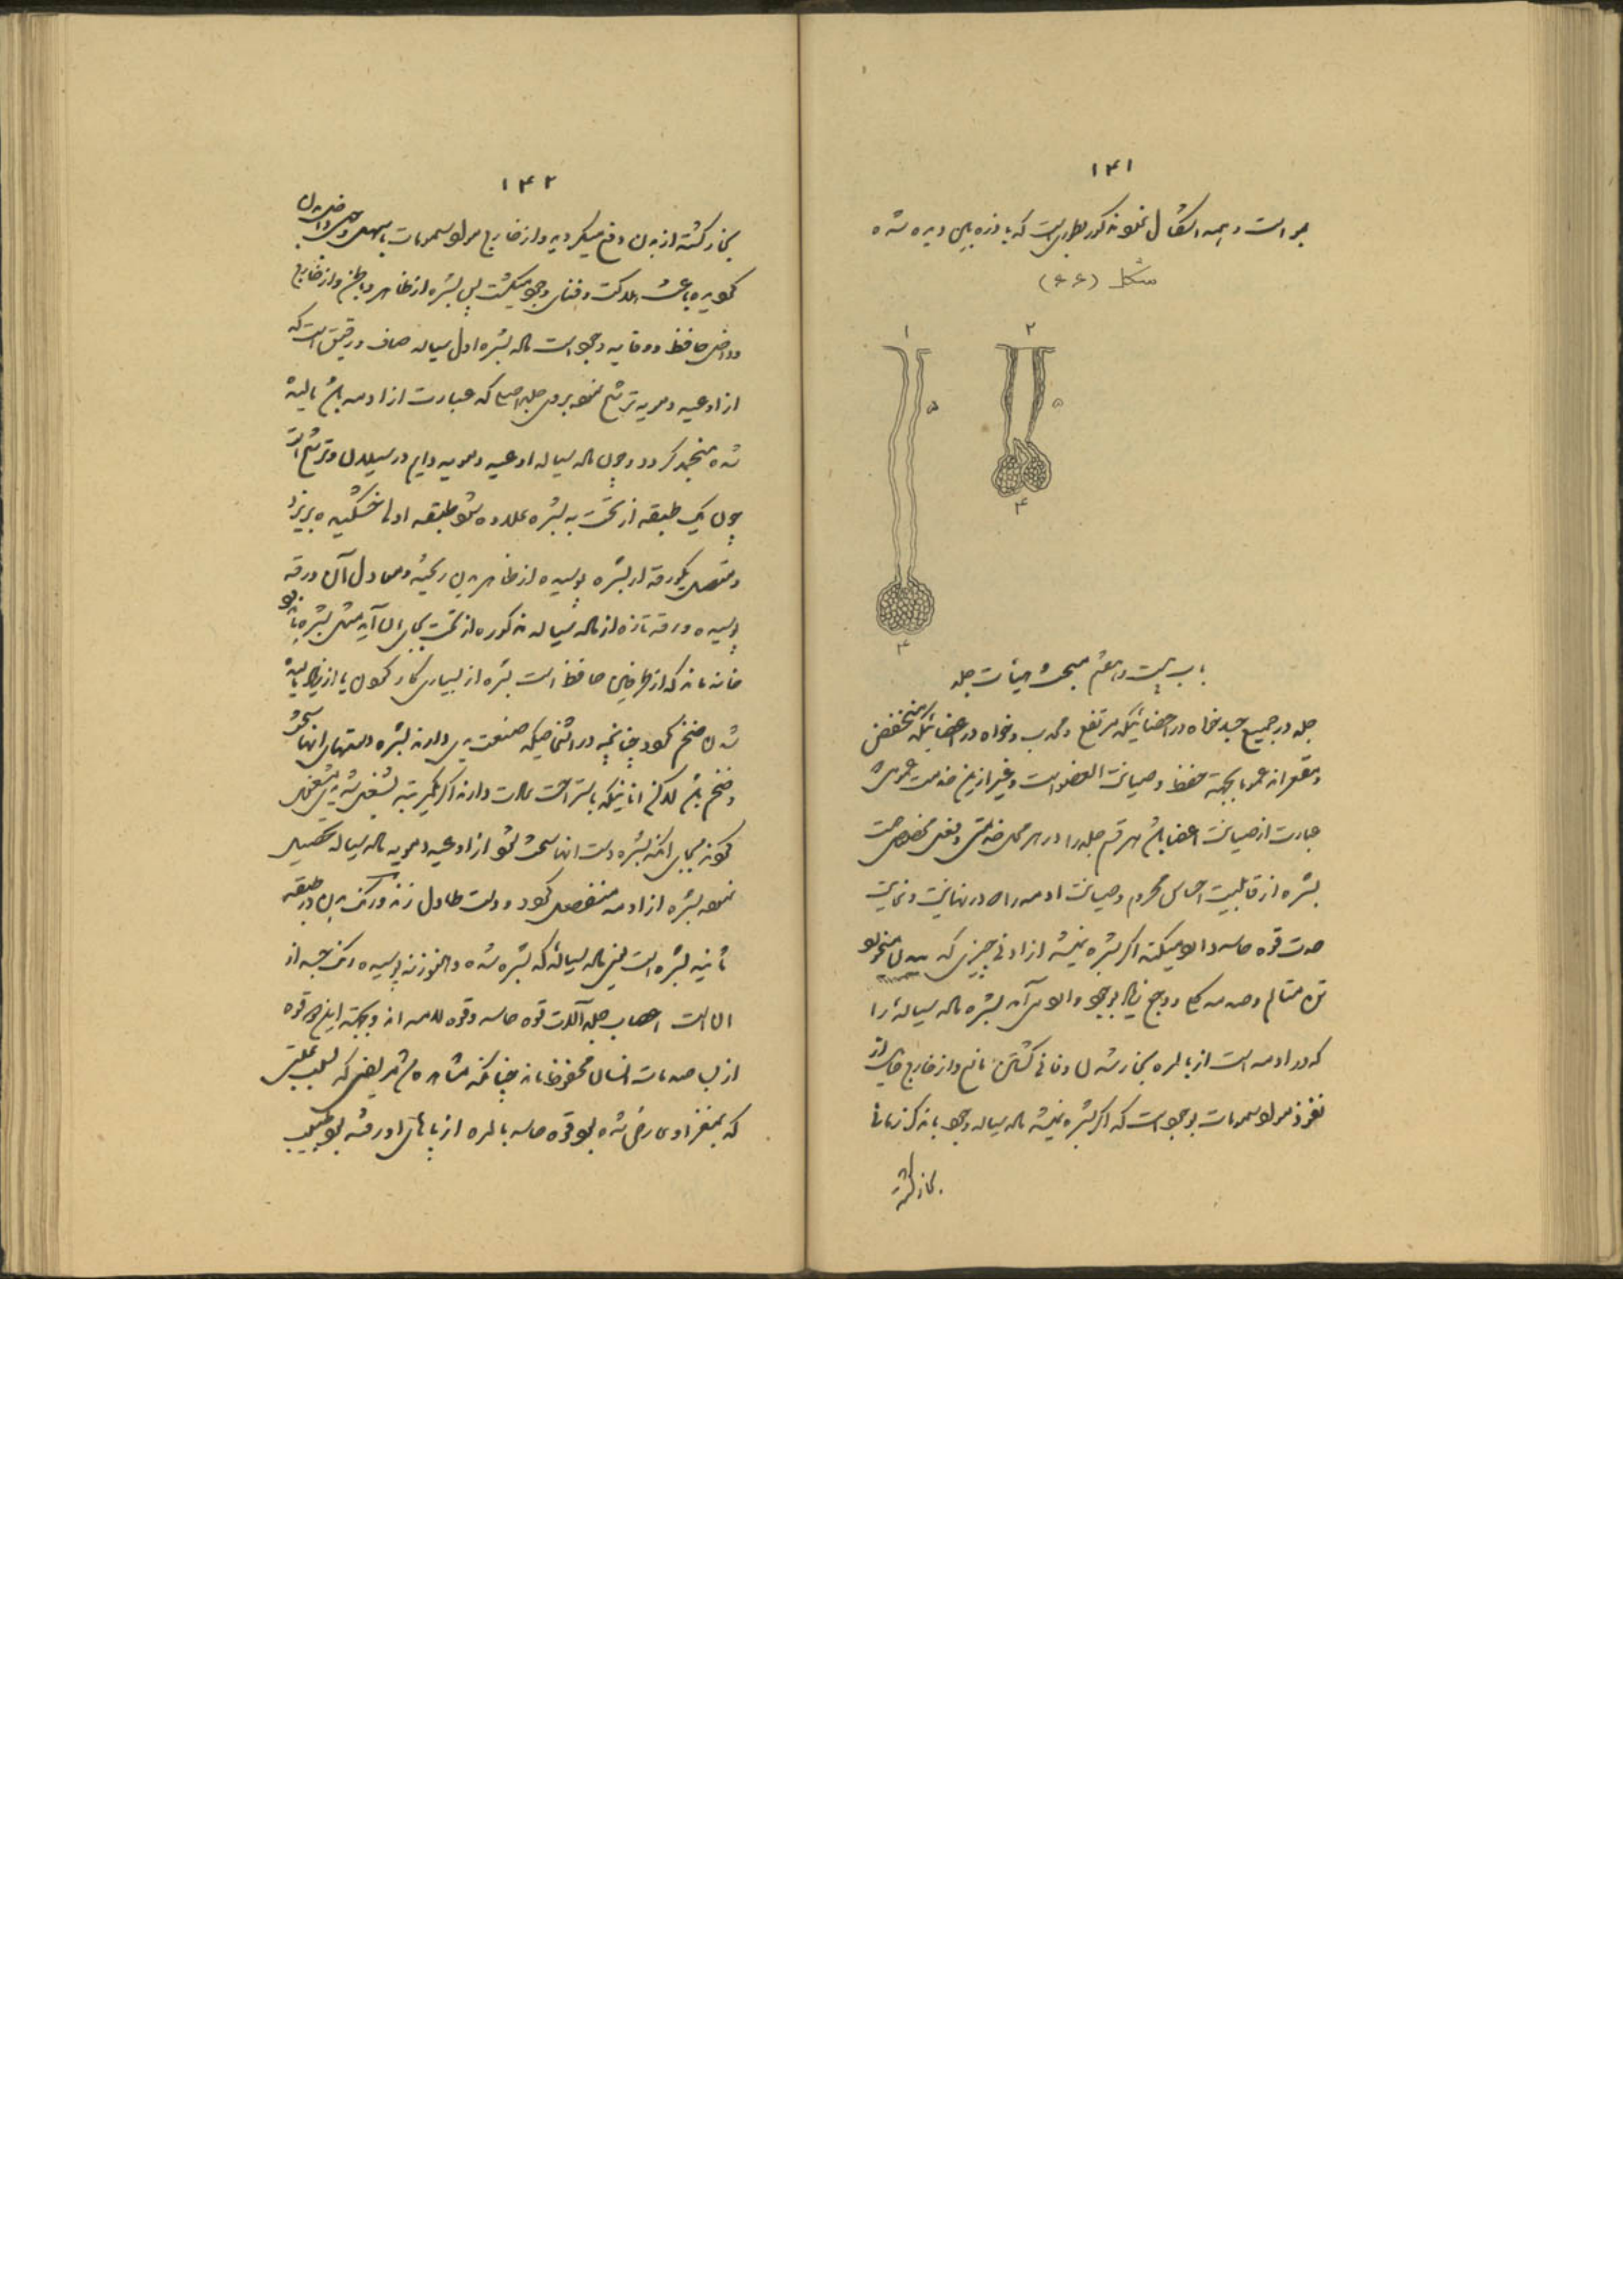 ۱۴۱
جداست و همه اشکال مذکور بطوریست که با ذره بین دیده شده
شکل (۶۶)
۱
۲
۵
۵
۴
۴
باب بیست و هفتم مبحث هیأت جلد
جلد در جمیع جسد خواه در اعضائیکه مرتفع و محدب و خواه در اعضائیکه منخفض
و مقعراند عموما بجهة حفظ و صیانت العضو است و غیر ازین خدمت عمومی
عبارت از صیانت اعضا باشد هر قسم جلد را در هر محل خدمتی و نفعی مخصوص است
بشره از قابلیت احساس محروم و صیانت ادمه را در نهایت
قوه حاسه را میکند اگر بشره نمیشد از ادنی چیزی که
متالم و صدمه و وجع بشره ماده سیاله را
که در ادمه است از بالمره بخار شدن و فانی گشتن مانع و از خارج
نفوذ مواد سمومات که اگر بشره نمیشد ماده سیاله وجود باندک زمانی
بخار گشته
۱۴۲
بخار گشته از بدن دفع میگردید و از خارج مواد سمومات بسهل وجهی داخل بدن
گردیده باعث هلاکت و فنای وجود میگشت پس بشره از ظاهر و باطن و از خارج
و داخل حافظ و وقایه وجود است ماده بشره اول سیاله صاف و رقیق است که
از اوعیه دمویه ترشح نموده بروی جلد اصلی که عبارت از ادمه باشد
شده منجمد گردد و چون ماده سیاله اوعیه دمویه دایم در سیلان و ترشح است
چون یک طبقه از تحت به بشره علاوه شود طبقه اولی خشکیده بریزد
و متصل یکورقه از بشره پوسیده از ظاهر بدن ریخته و معادل آن ورقه
پوسیده ورقه تازه از ماده سیاله مذکوره از تحت بجای آن آید مثل بشره
نماند که از طرفین حافظ است بشره از بسیاری کار کردن یا از زیاد
شدن ضخیم گردد چنانچه در اشخاصیکه صنعت یدی دارند بشره دستهای انها سخت
و ضخیم باشد لکن انانیکه باستراحت عادت دارند اگر یکمرتبه بشغل یدی مشغول
گردند بجای انکه بشره دست انها سخت شود از اوعیه دمویه ماده سیاله تحصیل
نموده بشره از ادمه منفصل گردد و دست طاول زند و رنگ بدن در طبقه
ثانیه بشره است یعنی ماده سیالهٔ که بشره شده و هنوز نپوسیده رنگ جسد از
آن است اعصاب جلد آلات قوه حاسه و قوه لامسه اند و بجهة این دو قوه
از بسی صدمات انسان محفوظ ماند چنانکه مشاهده شد مریضی که بسبب علتی
که بمغز او عارض شده بود قوه حاسه بالمره از پاهای او رفته بود طبیب